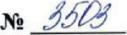 № 3503